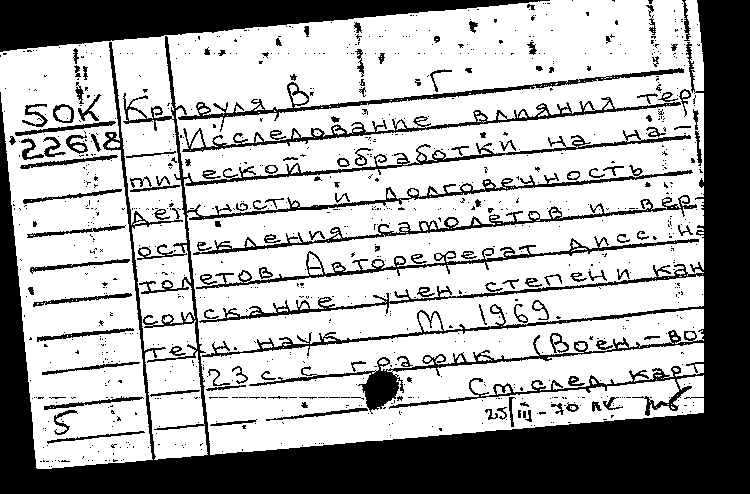 50К Кривуля, В Г
22618 Исследование влияния тер
тической обработки на на-
дежность и долговечность
остекления самолетов и верт
толетов. Автореферат дисс. на
соискание учен. степени кан
техн. наук. М., 1969.
23 с. с график. (Воен.-воз
Ст. след. карт
5 25/III-70